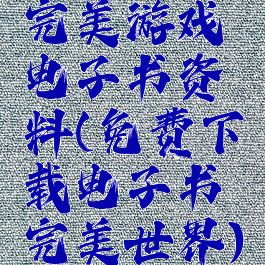 完美游戏
电子书资
料(免费下
载电子书
完美世界)